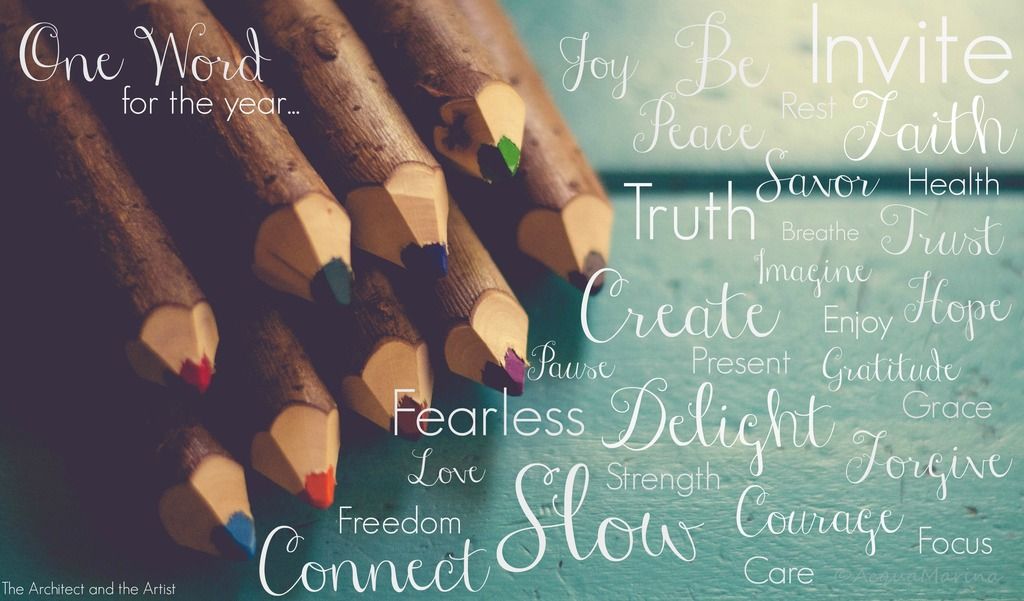 One Word
for the year...
Joy Be Invite
Peace Rest Faith
Savor Health
Truth Breathe Trust
Imagine
Create Enjoy Hope
Pause Present Gratitude
Fearless Delight Grace
Love Strength Forgive
Freedom Slow Courage Focus
Connect Care
The Architect and the Artist
©AcquaMarina